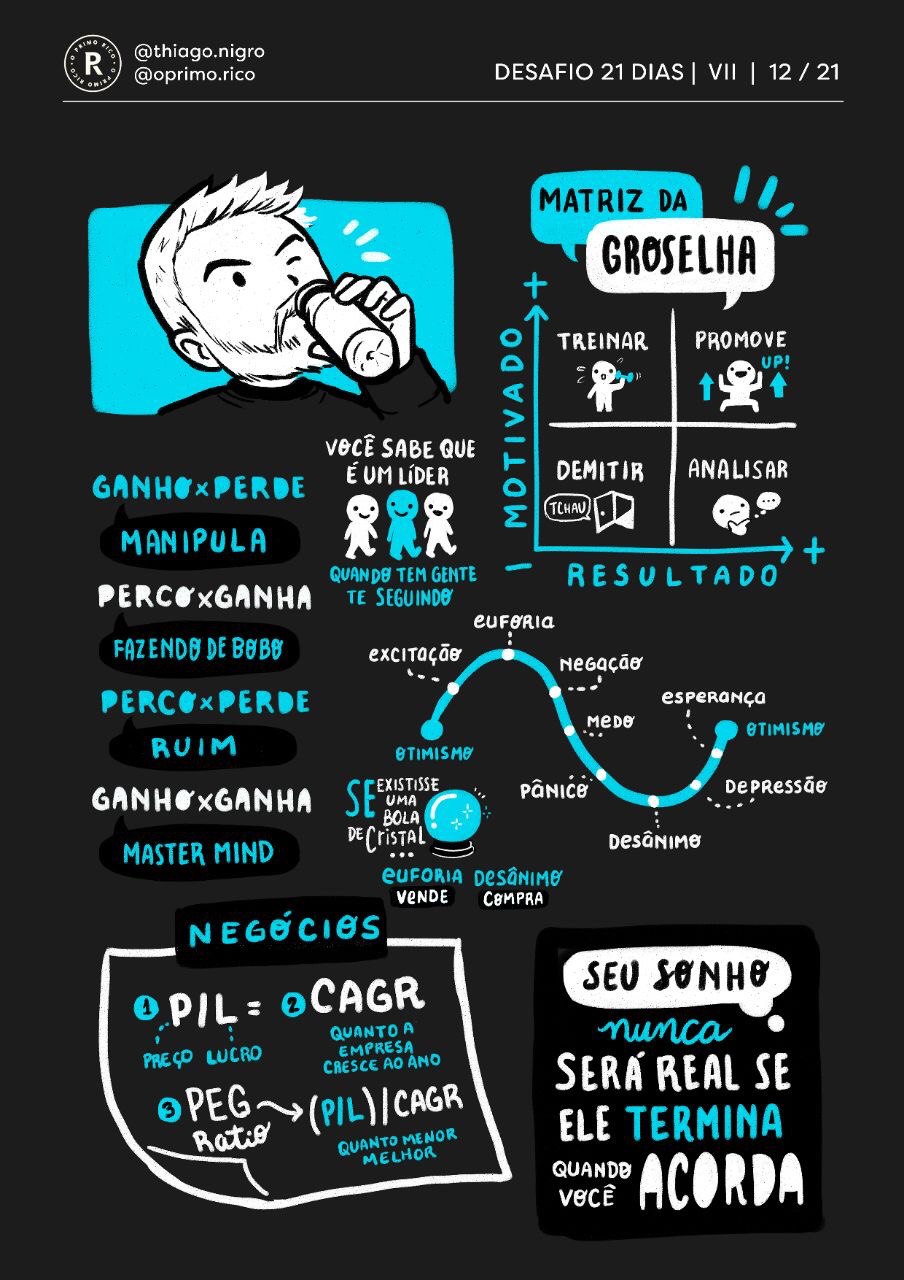 O PRIMO RICO • O PRIMO RICO •
R
@thiago.nigro
@oprimo.rico
DESAFIO 21 DIAS | VII | 12 / 21
MATRIZ DA
GROSELHA
+
MOTIVADO
TREINAR
PROMOVE
UP!
DEMITIR
TCHAU
ANALISAR
–
RESULTADO
+
VOCÊ SABE QUE
É UM LÍDER
QUANDO TEM GENTE
TE SEGUINDO
GANHO x PERDE
MANIPULA
PERCO x GANHA
FAZENDO DE BOBO
PERCO x PERDE
RUIM
GANHO x GANHA
MASTER MIND
OTIMISMO
excitação
euforia
negação
medo
Pânico
Desânimo
Depressão
esperança
OTIMISMO
SE EXISTISSE
UMA
BOLA
DE CRISTAL
...
euforia
VENDE
Desânimo
COMPRA
NEGÓCIOS
1 P/L =
PREÇO LUCRO
2 CAGR
QUANTO A
EMPRESA
CRESCE AO ANO
3 PEG
Ratio
(P/L) / CAGR
QUANTO MENOR
MELHOR
SEU SONHO
nunca
SERÁ REAL SE
ELE TERMINA
QUANDO
VOCÊ ACORDA